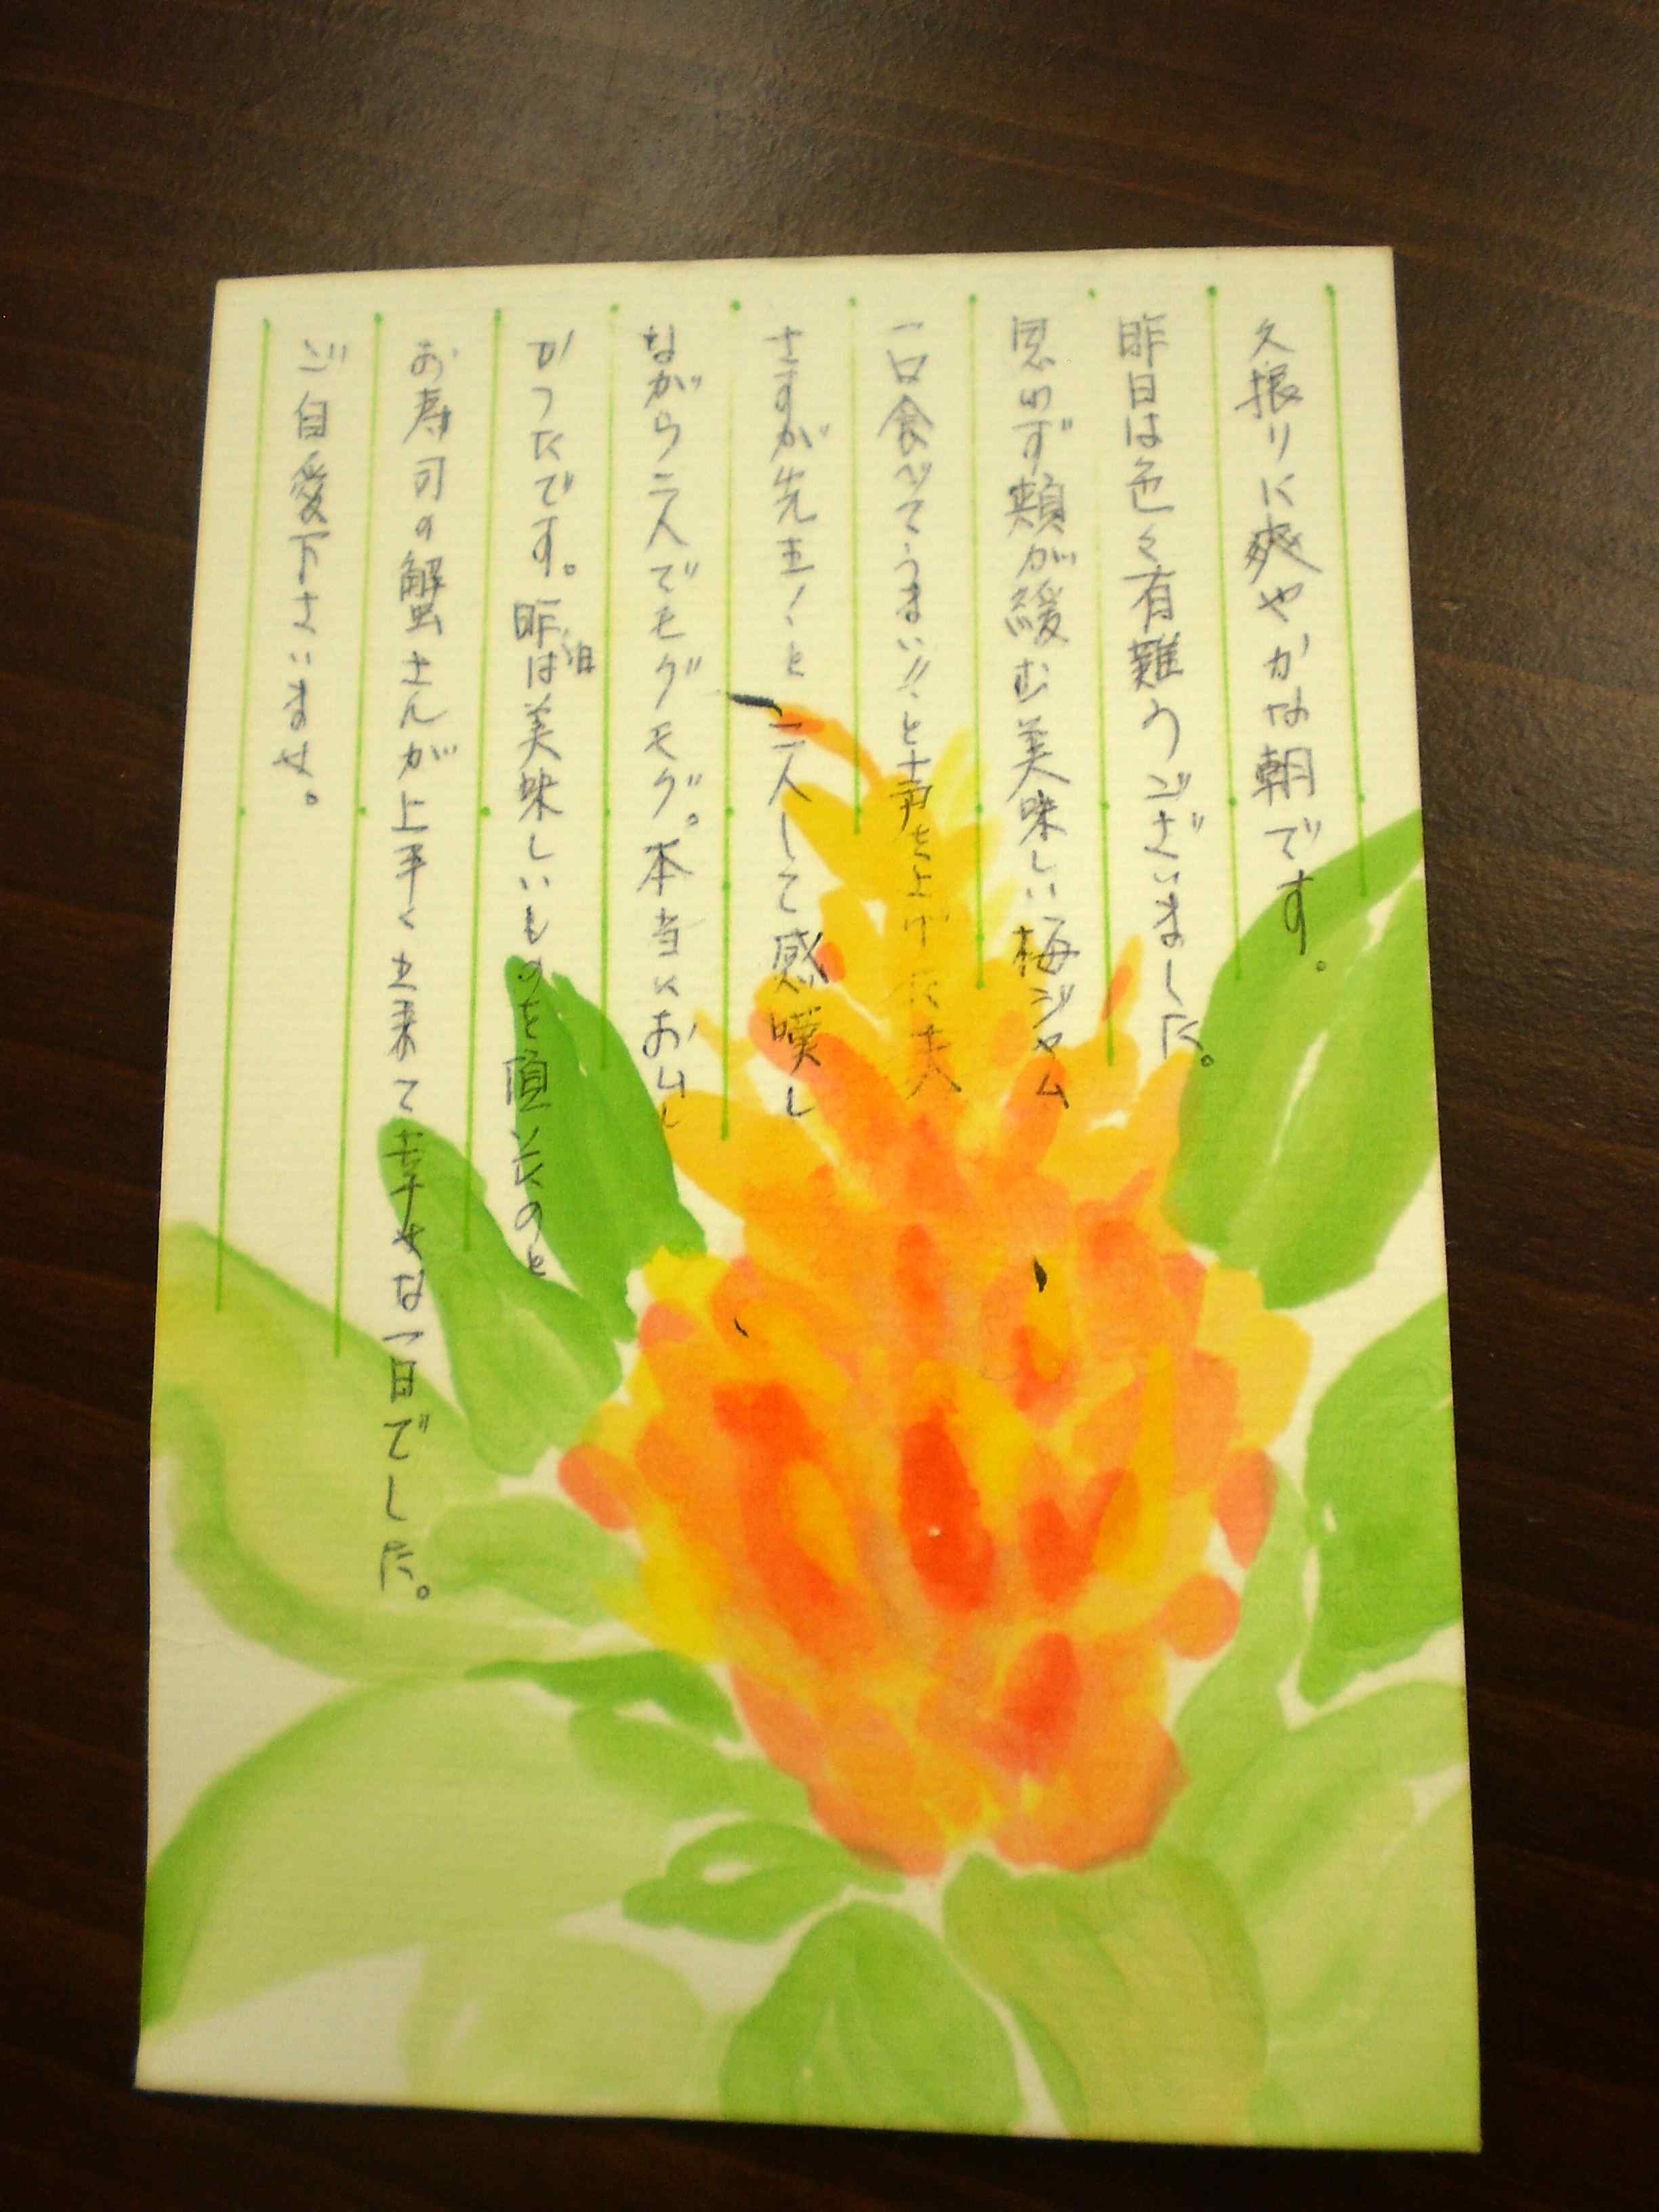 久振りに爽やかな朝です。
昨日は色々有難うございました。
思わず頬が緩む美味しい梅ジャム
一口食べてうまい!!と声を上げた夫
さすが先生!と二人して感嘆し
ながら二人でモグモグ。本当においし
かったです。昨日は美味しいものを頂いたのと
お寿司の蟹さんが上手く出来て幸せな一日でした。
ご自愛下さいませ。